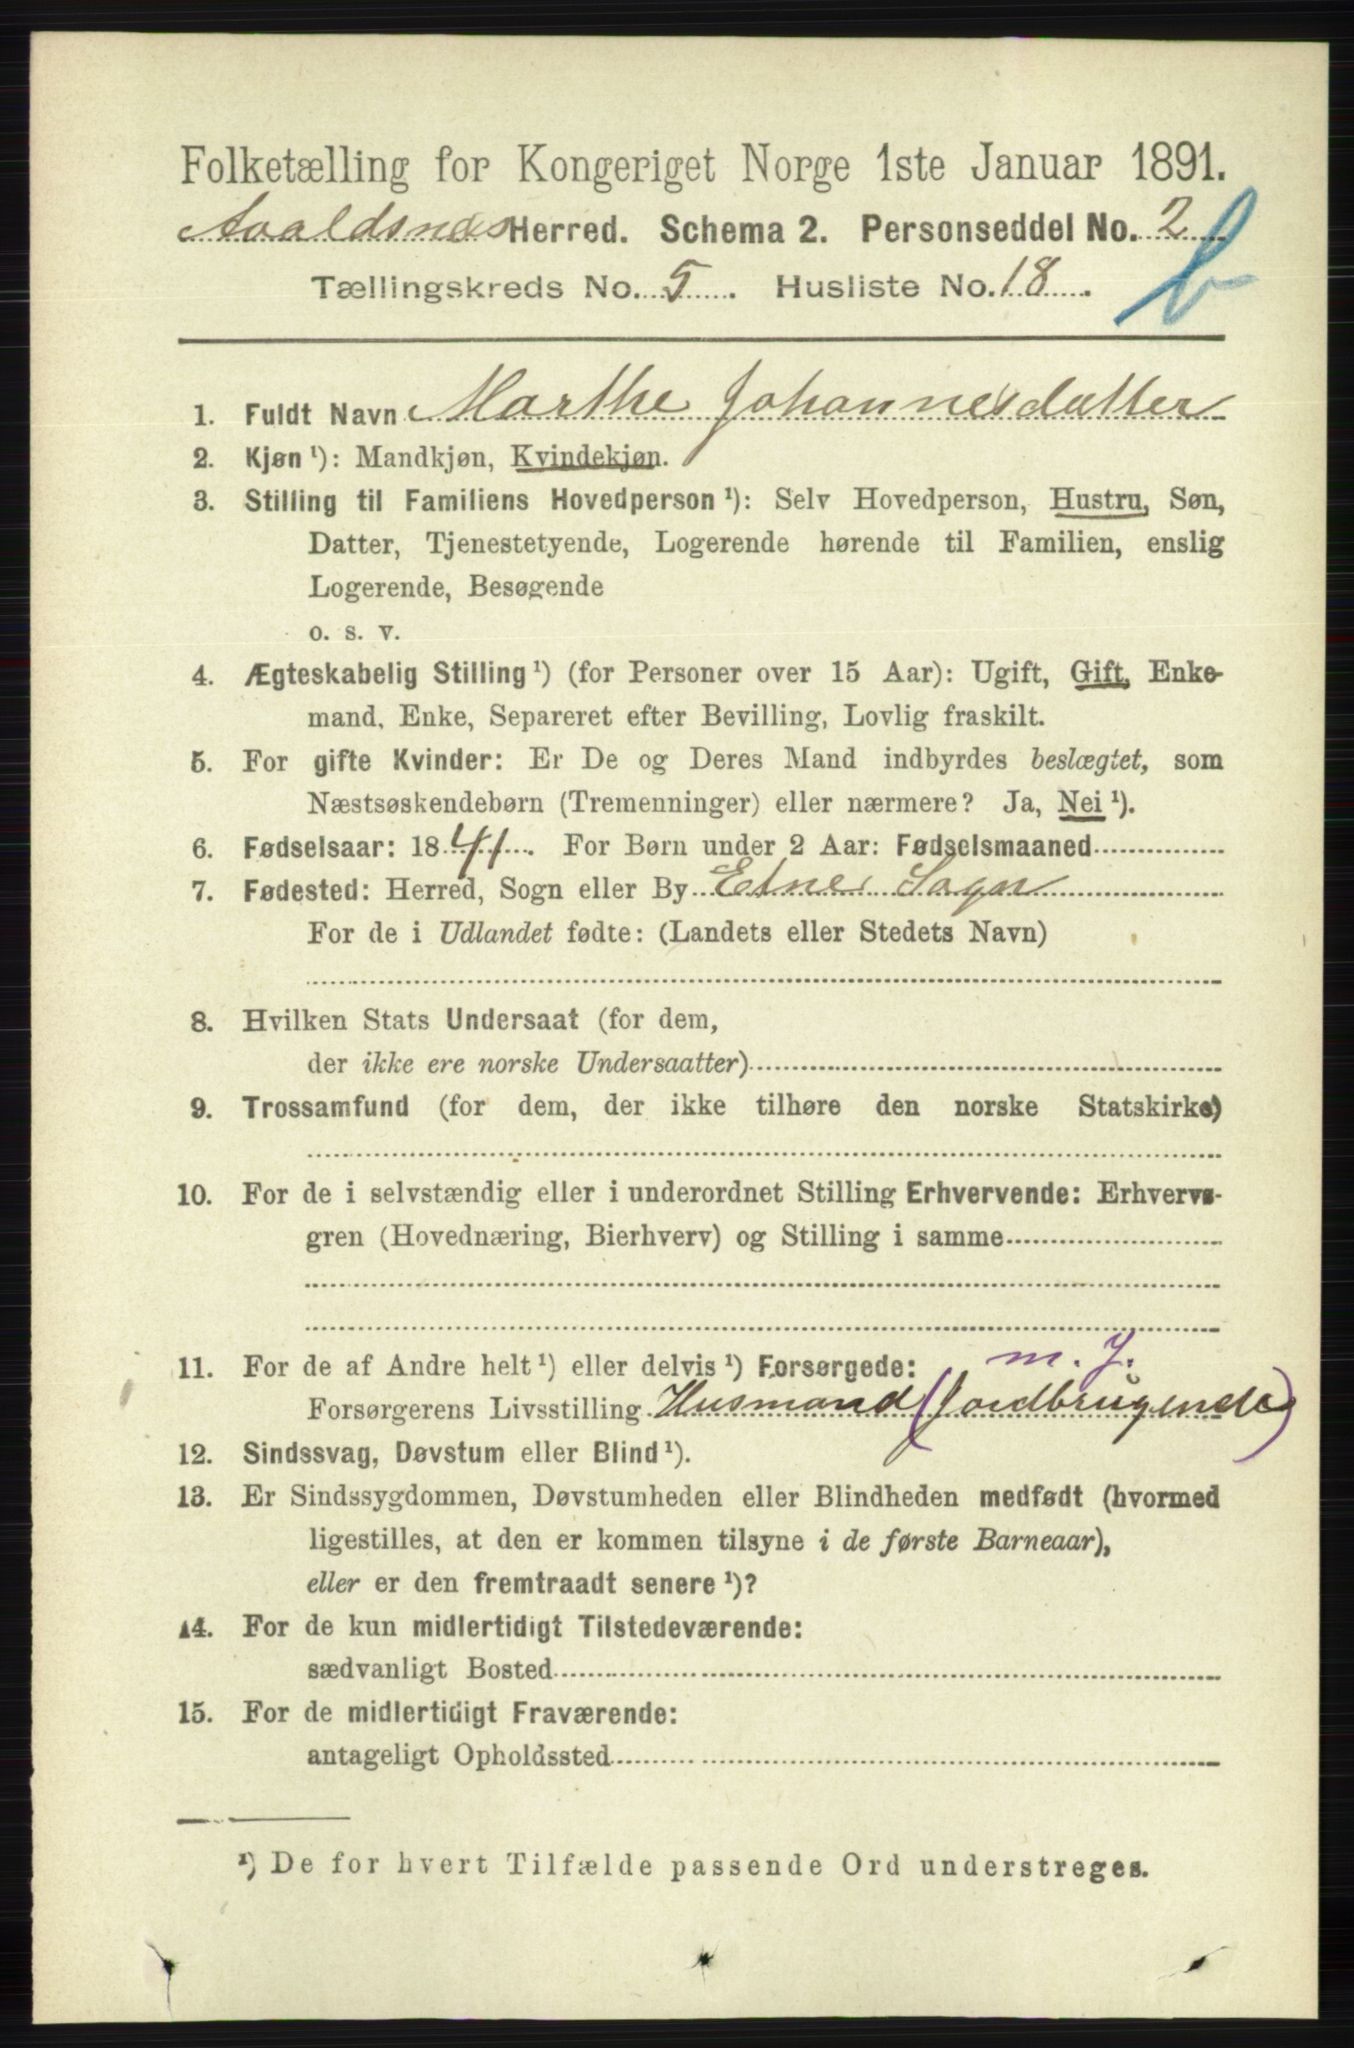 Folketælling for Kongeriget Norge 1ste Januar 1891.
Avaldsnes Herred. Schema 2. Personseddel No. 2
Tællingskreds No. 5. Husliste No. 18.
b
1. Fuldt Navn Marthe Johannesdatter
2. Kjøn ¹): Mandkjøn, Kvindekjøn.
3. Stilling til Familiens Hovedperson ¹): Selv Hovedperson, Hustru, Søn,
Datter, Tjenestetyende, Logerende hørende til Familien, enslig
Logerende, Besøgende
o. s. v.
4. Ægteskabelig Stilling ¹) (for Personer over 15 Aar): Ugift, Gift, Enke-
mand, Enke, Separeret efter Bevilling, Lovlig fraskilt.
5. For gifte Kvinder: Er De og Deres Mand indbyrdes beslægtet, som
Næstsøskendebørn (Tremenninger) eller nærmere? Ja, Nei ¹).
6. Fødselsaar: 1841. For Børn under 2 Aar: Fødselsmaaned
7. Fødested: Herred, Sogn eller By Etne Sogn
For de i Udlandet fødte: (Landets eller Stedets Navn)
8. Hvilken Stats Undersaat (for dem,
der ikke ere norske Undersaatter)
9. Trossamfund (for dem, der ikke tilhøre den norske Statskirke)
10. For de i selvstændig eller i underordnet Stilling Erhvervende: Erhvervs-
gren (Hovednæring, Bierhverv) og Stilling i samme
11. For de af Andre helt ¹) eller delvis ¹) Forsørgede: m. J.
Forsørgerens Livsstilling Husmand (Jordbrugende)
12. Sindssvag, Døvstum eller Blind ¹).
13. Er Sindssygdommen, Døvstumheden eller Blindheden medfødt (hvormed
ligestilles, at den er kommen tilsyne i de første Barneaar),
eller er den fremtraadt senere ¹)?
14. For de kun midlertidigt Tilstedeværende:
sædvanligt Bosted
15. For de midlertidigt Fraværende:
antageligt Opholdssted
¹) De for hvert Tilfælde passende Ord understreges.